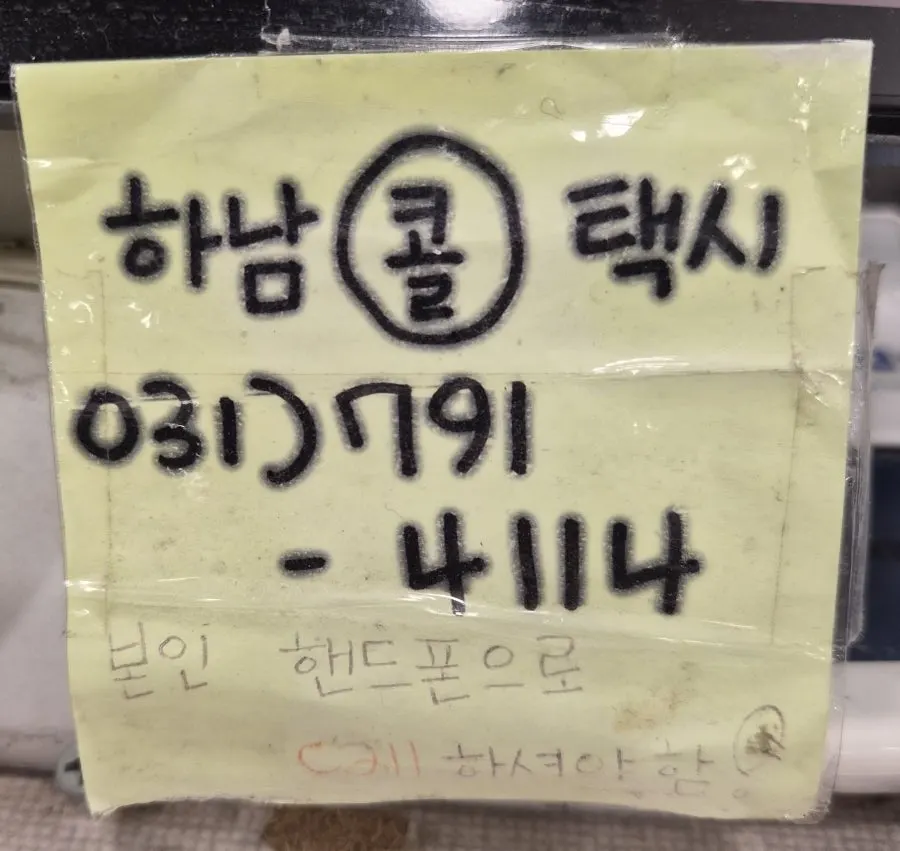 하남 콜 택시
031)791
- 4114
본인 핸드폰으로
Call 하셔야 함.